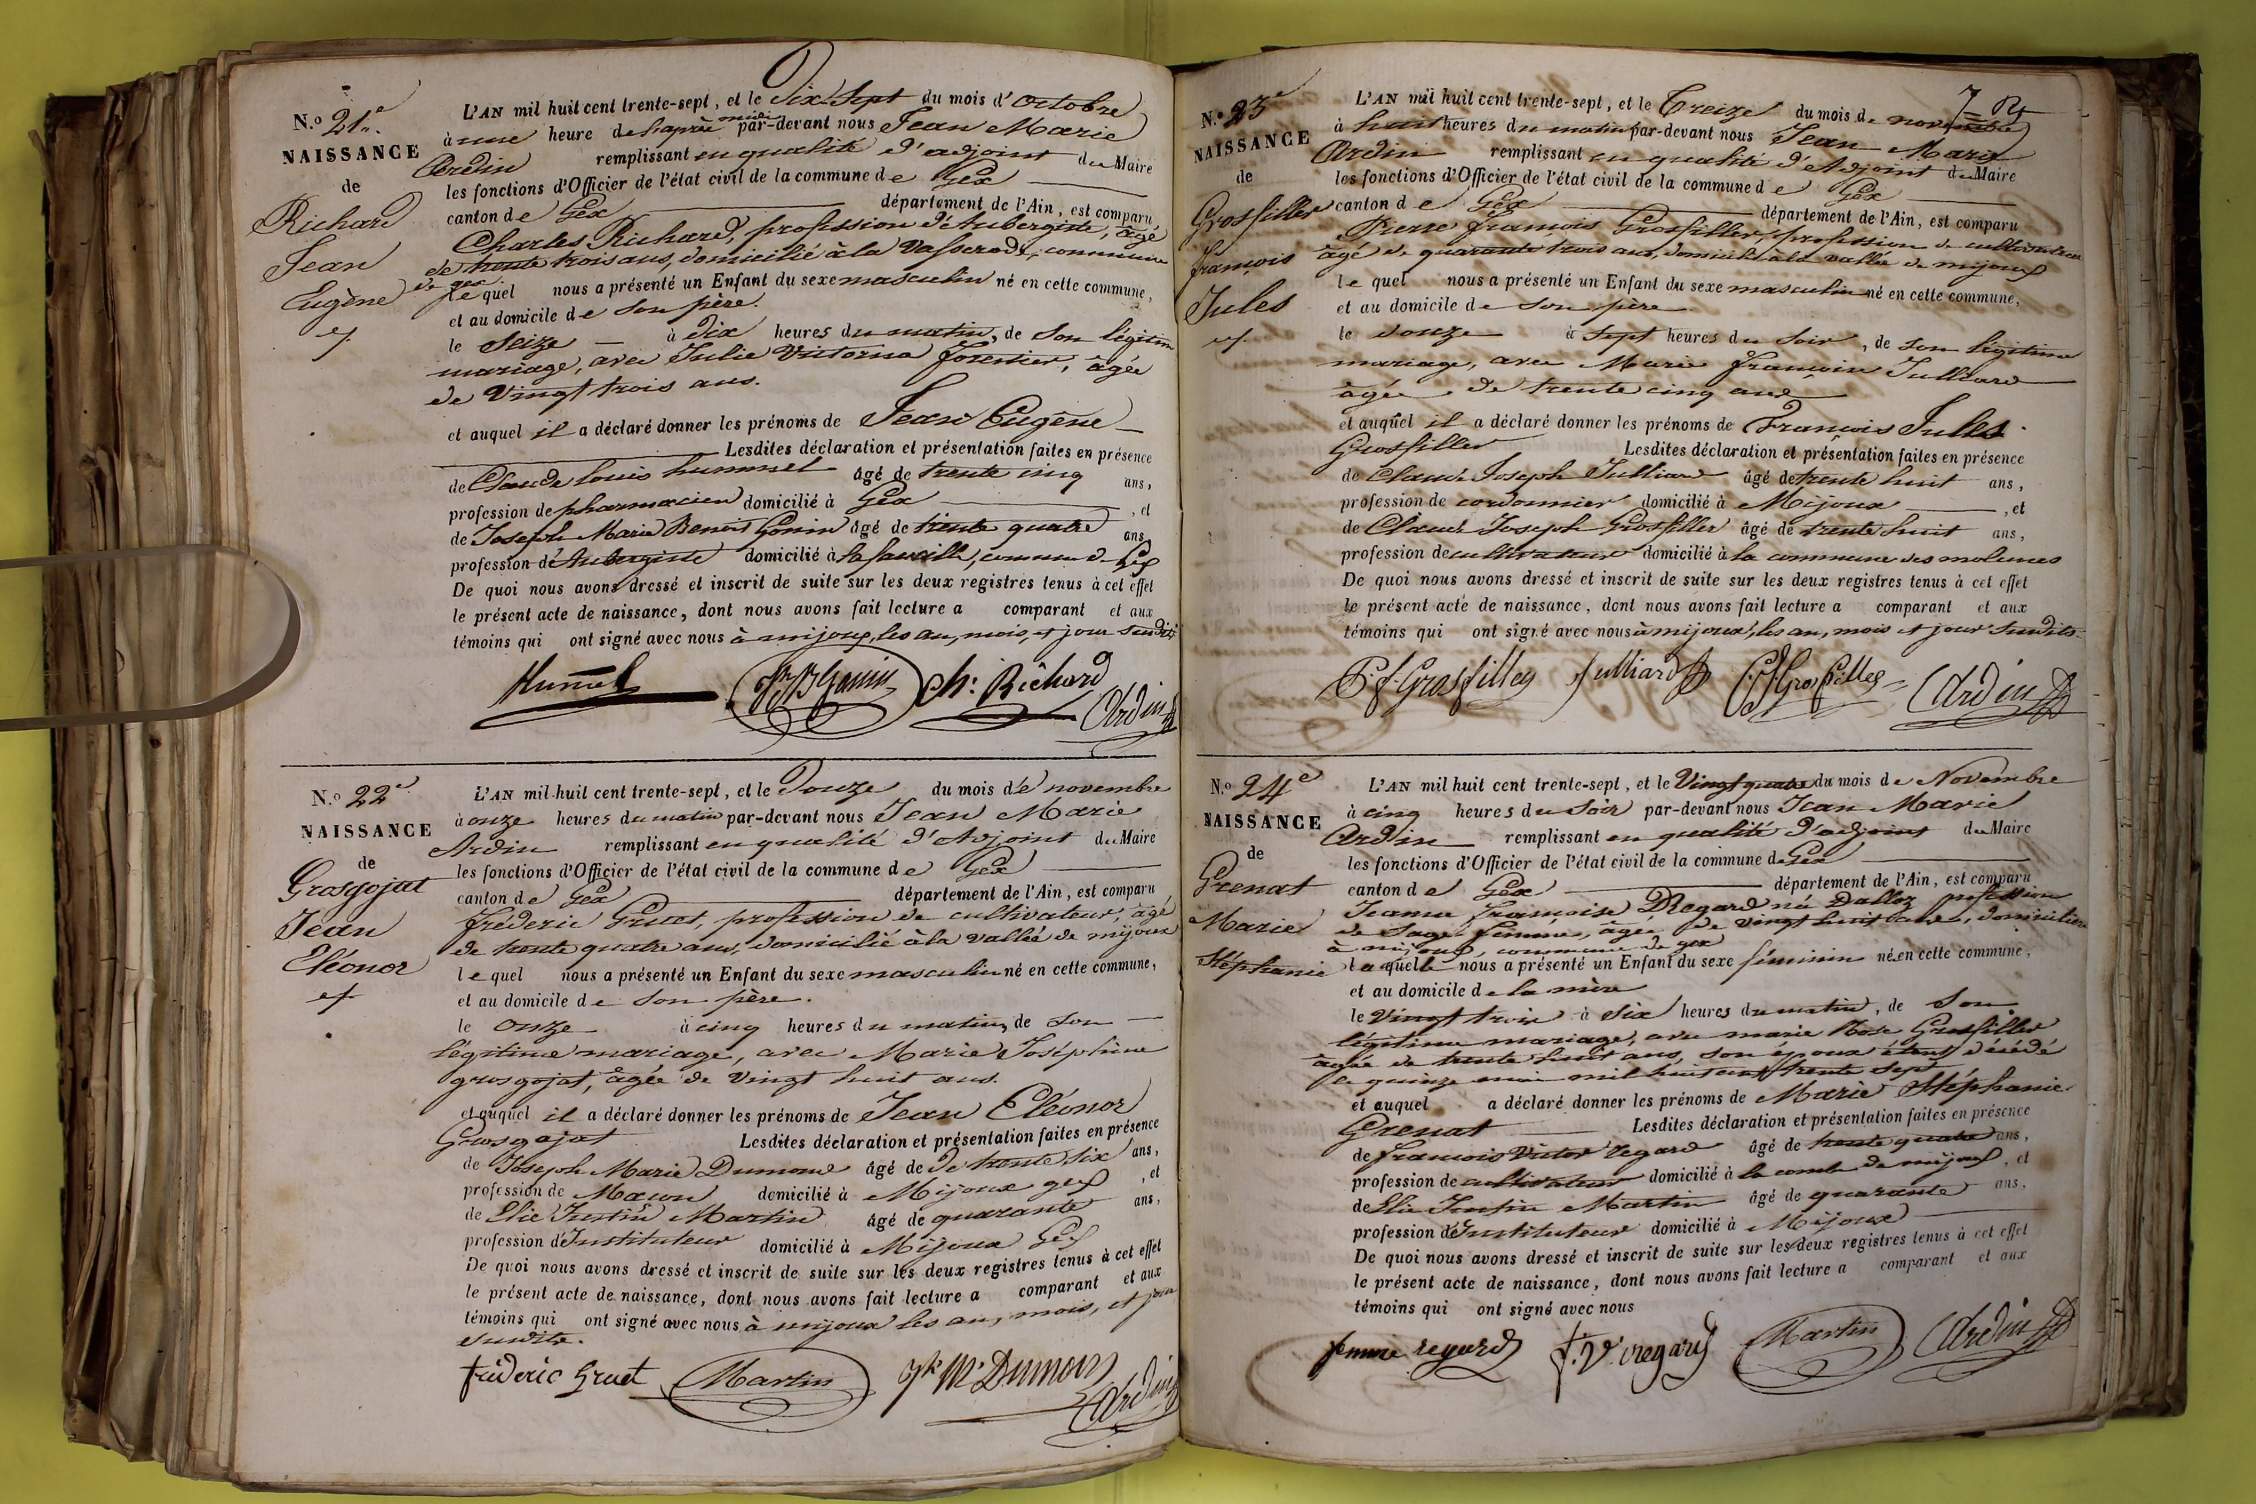 N.o 21e.
NAISSANCE
de
Richard
Jean
Eugène
L'AN mil huit cent trente-sept, et le Dix Sept du mois d'octobre
à une heure de l'après midi par-devant nous Jean Marie
Ardin remplissant en qualité d'adjoint du Maire
les fonctions d'Officier de l'état civil de la commune de Gex
canton de Gex département de l'Ain, est comparu
Charles Richard, profession d'Aubergiste, âgé
de trente trois ans, domicilié à la Vasserode, commune
de gex.
lequel nous a présenté un Enfant du sexe masculin né en cette commune,
et au domicile de son père.
le seize à dix heures du matin, de son légitime
mariage, avec Julie Victorina forestier, âgée
de vingt trois ans.
et auquel il a déclaré donner les prénoms de Jean Eugène
Lesdites déclaration et présentation faites en présence
de Claude louis hummel âgé de trente cinq ans,
profession de pharmacien domicilié à Gex, et
de Joseph Marie Benoit Gonin âgé de trente quatre ans
profession d'Aubergiste domicilié à la faucille, commune de Gex
De quoi nous avons dressé et inscrit de suite sur les deux registres tenus à cet effet
le présent acte de naissance, dont nous avons fait lecture a comparant et aux
témoins qui ont signé avec nous à mijoux, les an, mois, et jour susdits
Humel Gonin Ch: Richard
Ardin
N.o 22e
NAISSANCE
de
Grosgojat
Jean
Eléonor
L'AN mil huit cent trente-sept, et le Douze du mois de novembre
à onze heures du matin par-devant nous Jean Marie
Ardin remplissant en qualité d'Adjoint du Maire
les fonctions d'Officier de l'état civil de la commune de Gex
canton de Gex département de l'Ain, est comparu
fréderic Gruet, profession de cultivateur, âgé
de trente quatre ans, domicilié à la vallée de mijoux
lequel nous a présenté un Enfant du sexe masculin né en cette commune,
et au domicile de son père.
le onze à cinq heures du matin, de son
légitime mariage, avec Marie Joséphine
grosgojat, âgée de vingt huit ans.
et auquel il a déclaré donner les prénoms de Jean Eléonor
Grosgojat Lesdites déclaration et présentation faites en présence
de Joseph Marie Dumond âgé de de trente six ans,
profession de Macon domicilié à Mijoux gex, et
de Elie Justin Martin âgé de quarante ans,
profession d'Instituteur domicilié à Mijoux Gex
De quoi nous avons dressé et inscrit de suite sur les deux registres tenus à cet effet
le présent acte de naissance, dont nous avons fait lecture a comparant et aux
témoins qui ont signé avec nous à mijoux les an, mois, et jour
susdits.
fréderic Gruet Martin Jh Mie Dumon
Ardin
N.o 23e
NAISSANCE
de
Grosfiller
françois
Jules
L'AN mil huit cent trente-sept, et le Treize du mois de novembre
à huit heures du matin par-devant nous Jean Marie
Ardin remplissant en qualité d'Adjoint du Maire
les fonctions d'Officier de l'état civil de la commune de Gex
canton de Gex département de l'Ain, est comparu
Pierre françois Grosfiller, profession de cultivateur
âgé de quarante trois ans, domicilié à la vallée de mijoux
lequel nous a présenté un Enfant du sexe masculin né en cette commune,
et au domicile de son père
le douze à sept heures du soir, de son légitime
mariage, avec Marie françoise Julliard
âgée de trente cinq ans
et auquel il a déclaré donner les prénoms de François Jules
Grosfiller Lesdites déclaration et présentation faites en présence
de Claude Joseph Julliard âgé de trente huit ans,
profession de cordonnier domicilié à Mijoux, et
de Claude Joseph Grosfiller âgé de trente huit ans,
profession de cultivateur domicilié à la commune des molunes
De quoi nous avons dressé et inscrit de suite sur les deux registres tenus à cet effet
le présent acte de naissance, dont nous avons fait lecture a comparant et aux
témoins qui ont signé avec nous à mijoux, les an, mois et jour susdits.
P. f. Grosfiller Julliard C J Grosfiller Ardin
N.o 24e
NAISSANCE
de
Grenat
Marie
Stéphanie
L'AN mil huit cent trente-sept, et le Vingt quatre du mois de Novembre
à cinq heures du Soir par-devant nous Jean Marie
Ardin remplissant en qualité d'adjoint du Maire
les fonctions d'Officier de l'état civil de la commune de Gex
canton de Gex département de l'Ain, est comparu
Jeanne françoise Regard née Dalloz profession
de Sage femme, âgée de vingt huit ans, domiciliée
à mijoux, commune de gex
laquelle nous a présenté un Enfant du sexe féminin né en cette commune,
et au domicile de la mère
le vingt trois à six heures du matin, de son
légitime mariage, avec marie Rose Grosfiller
âgée de trente huit ans, son époux étant décédé
le quinze mai mil huit cent trente sept
et auquel a déclaré donner les prénoms de Marie Stéphanie
Grenat Lesdites déclaration et présentation faites en présence
de francois Victor regard âgé de trente quatre ans,
profession de cultivateur domicilié à la combe de mijoux, et
de Elie Justin Martin âgé de quarante ans,
profession d'Instituteur domicilié à Mijoux
De quoi nous avons dressé et inscrit de suite sur les deux registres tenus à cet effet
le présent acte de naissance, dont nous avons fait lecture a comparant et aux
témoins qui ont signé avec nous
femme regard f. V. regard Martin Ardin